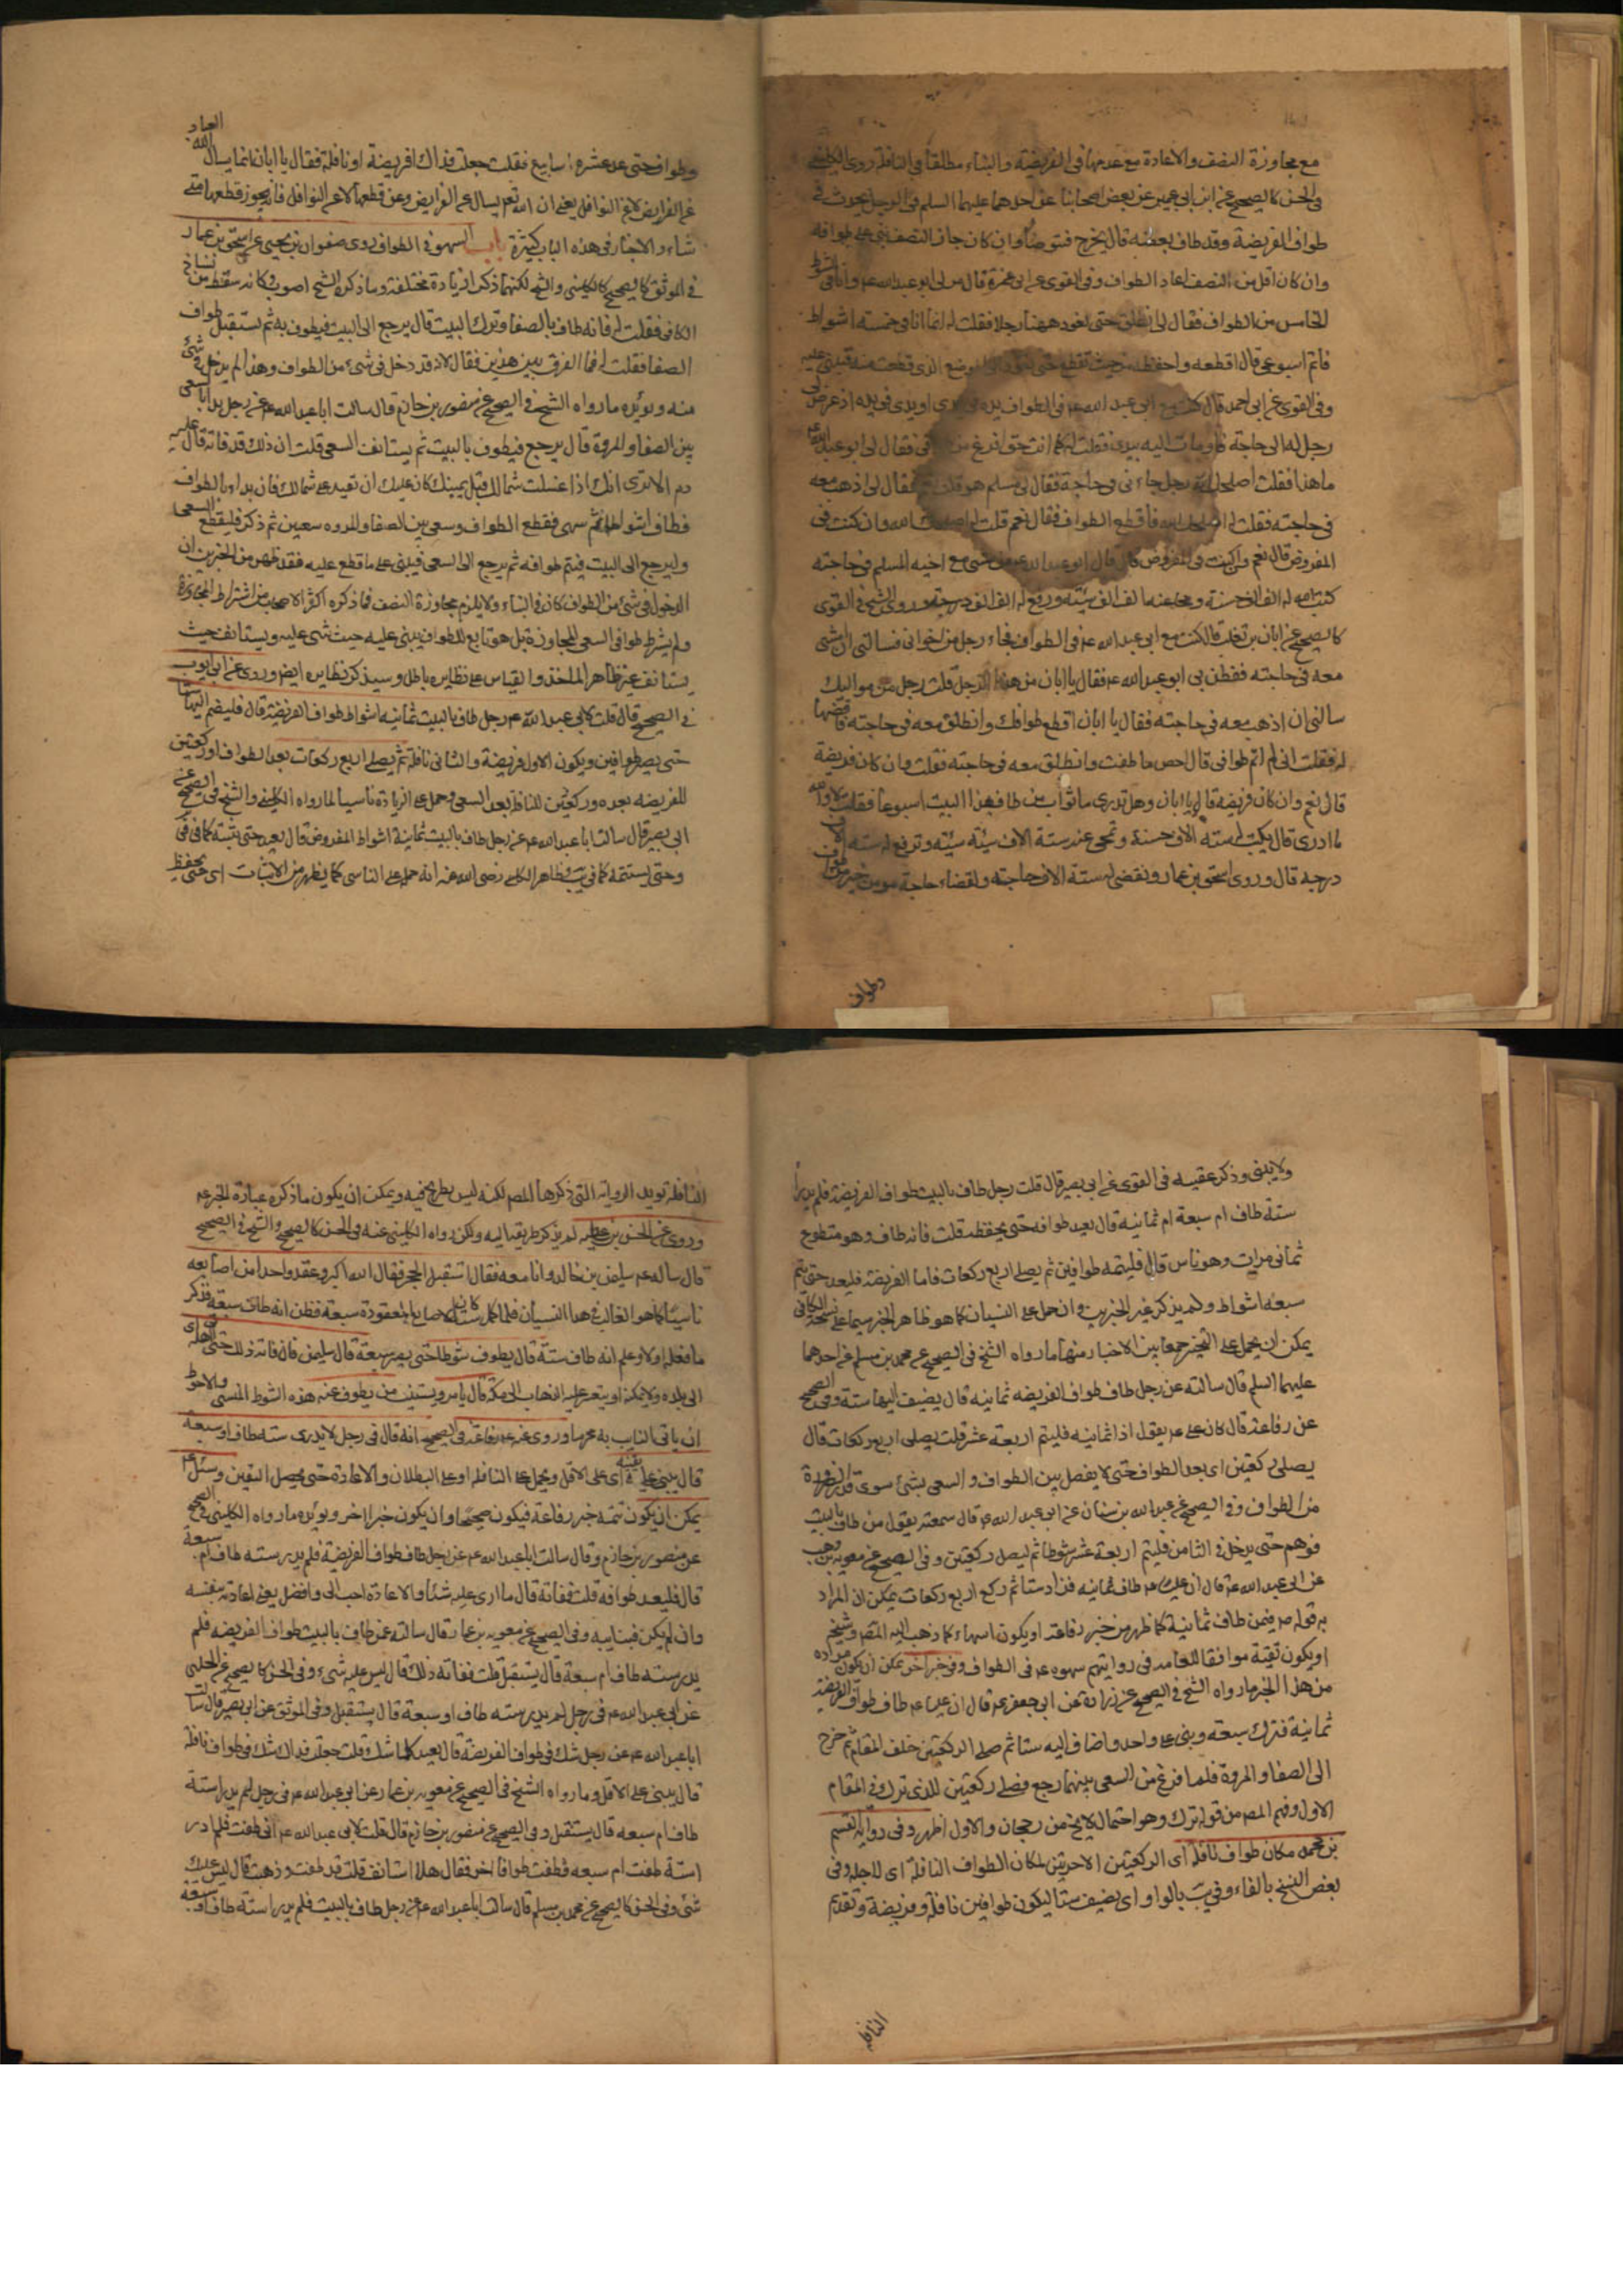 مع مجاوزة النصف والاعادة مع عدمها فى الفريضة والبناء مطلقا فى النافلة روى الكلينى
فى الحسن كالصحيح عن ابن ابى عمير عن بعض اصحابنا عن احدهما عليهما السلم فى الرجل يحدث فى
طواف الفريضة وقد طاف بعضه قال يخرج فيتوضأ وان كان جاز النصف بنى على طوافه
وان كان اقل من النصف اعاد الطواف وفى القوى عن ابى غرة قال مر بى ابو عبد الله ع وانا فى الشوط
الخامس من الطواف فقال لى انطلق حتى نعود ههنا رجلا فقلت له انما انا فى خمسة اشواط
فاتم اسبوعى قال اقطعه واحفظه من حيث تقطع حتى تعود الى الموضع الذى قطعت منه فتبنى عليه
وفى القوى عن ابى احمد قال كنت مع ابى عبد الله ع فى الطواف يده فى يدى او يدى فى يده اذ عرض لى
رجل له الى حاجة فاومأت اليه بيدى فقلت له كما انت حتى افرغ من طوافى فقال لى ابو عبد الله ع
ما هذا فقلت اصلحك الله رجل جاءنى فى حاجة فقال لى مسلم هو قلت نعم فقال لى اذهب معه
فى حاجته فقلت له اصلحك الله فاقطع الطواف فقال نعم قلت له اصلحك الله وان كنت فى
المفروض قال نعم وان كنت فى المفروض قال وقال ابو عبد الله ع من مشى مع اخيه المسلم فى حاجته
كتب الله له الف الف حسنة ومحا عنه الف الف سيئة ورفع له الف الف درجة وروى الشيخ فى القوى
كالصحيح عن ابان بن تغلب قال كنت مع ابى عبد الله ع فى الطواف فجاء رجل من اخوانى فسالنى ان امشى
معه فى حاجته ففطن بى ابو عبد الله ع فقال يا ابان من هذا الرجل قلت رجل من مواليك
سالنى ان اذهب معه فى حاجته فقال يا ابان اقطع طوافك وانطلق معه فى حاجته فاقضها
له فقلت انى لم اتم طوافى قال احص ما طفت وانطلق معه فى حاجته فقلت وان كان فريضة
قال نعم وان كان فريضة قال يا ابان وهل تدرى ما ثواب من طاف بهذا البيت اسبوعا فقلت لا والله
ما ادرى قال يكتب له ستة الاف حسنة وتمحى عنه ستة الاف سيئة وترفع له ستة الاف
درجة قال وروى اسحق بن عمار ونقضى له ستة الاف حاجة ولقضاء حاجة مومن خير من طواف
وطواف
وطواف حتى عد عشرة اسابيع فقلت جعلت فداك افريضة او نافلة فقال يا ابان انما يسال الله العباد
عن الفرايض لا عن النوافل يعنى ان الله تعم يسال عن الفرايض وعن قطعها لا عن النوافل فانه يجوز قطعها متى
شاء والاخبار فى هذه الباب كثيرة باب السهو فى الطواف روى صفوان بن يحيى عن اسحق بن عمار
فى الموثق كالصحيح كالكلينى والشيخ لكنهما ذكرا زيادة مختلفة وما ذكره الشيخ اصوب وكانه سقط من نساخ
الكافى فقلت له فانه طاف بالصفا وترك البيت قال يرجع الى البيت فيطوف به ثم يستقبل طواف
الصفا فقلت له فما الفرق بين هذين فقال لانه قد دخل فى شىء من الطواف وهذا لم يدخل فى شىء
منه ويؤيده ما رواه الشيخ فى الصحيح عن منصور بن حازم قال سالت ابا عبد الله ع عن رجل بدا بالسعى
بين الصفا والمروة قال يرجع فيطوف بالبيت ثم يستانف السعى قلت ان ذلك قد فاته قال عليه
دم الا ترى انك اذا غسلت شمالك قبل يمينك كان عليك ان تعيد على شمالك فان بدا بالطواف
فطاف اشواطا ثم سهى فقطع الطواف وسعى بين الصفا والمروه سعين ثم ذكر فليقطع السعى
وليرجع الى البيت فيتم طوافه ثم يرجع الى السعى فيبنى على ما قطع عليه فقد ظهر من الخبرين ان
الدخول فى شىء من الطواف كان فى البناء ولا يلزم مجاوزة النصف فما ذكره اكثر الاصحاب من اشتراط المجاوزة
ولم يشترطوا فى السعى المجاوزة بل هو تابع للطواف يبنى عليه حيث بنى عليه ويستانف حيث
يستانف غير ظاهر الماخذ والقياس على نظايره باطل وسيذكر نظايره ايضا وروى عن ابى ايوب
فى الصحيح قال قلت لابى عبد الله ع رجل طاف بالبيت ثمانية اشواط طواف الفريضة قال فليضم اليها ستا
حتى يصير طوافين ويكون الاول فريضة والثانى نافلة ثم يصلى اربع ركعات بعد الطواف او ركعتين
للفريضه بعده وركعتين للنافلة بعد السعى وحمل على الزيادة ناسيا لما رواه الكلينى والشيخ فى الصحيح عن
ابى بصير قال سالت ابا عبد الله ع عن رجل طاف بالبيت ثمانية اشواط المفروض قال يعيد حتى يثبته كما فى فى
وحتى يستتمه كما فى يب وظاهر الكلينى رضى الله عنه انه حمل على الناسى كما يظهر من الاثبات اى حتى يحفظ
ولا يبنى وذكر عقيبه فى القوى عن ابى بصير قال قلت رجل طاف بالبيت طواف الفريضة فلم يدر أ
ستة طاف ام سبعة ام ثمانية قال يعيد طوافه حتى يحفظ قلت فانه طاف وهو متطوع
ثمانى مرات وهو ناس قال فليتمه طوافين ثم يصلى اربع ركعات فاما الفريضة فليعد حتى يتم
سبعة اشواط ولم يذكر غير الخبرين وان حمل على النسيان كما هو ظاهر الخبر سيما على نسخة الكافى
يمكن ان يحمل على التخيير جمعا بين الاخبار منها ما رواه الشيخ فى الصحيح عن محمد بن مسلم عن احدهما
عليهما السلم قال سالته عن رجل طاف طواف الفريضه ثمانية قال يضيف اليها ستة وفى الصحيح
عن رفاعة قال كان على ع يقول اذا ثمانية فليتم اربعة عشر قلت يصلى اربع ركعات قال
يصلى ركعتين اى بعد الطواف حتى لا يفصل بين الطواف والسعى بشئ سوى قدر الضرورة
من الطواف وفى الصحيح عن عبد الله بن سنان عن ابى عبد الله ع قال سمعته يقول من طاف بالبيت
فوهم حتى يدخل فى الثامن فليتم اربعة عشر شوطا ثم ليصل ركعتين وفى الصحيح عن معوية بن وهب
عن ابى عبد الله ع قال ان عليا ع طاف ثمانية فزاد ستا ثم ركع اربع ركعات يمكن ان المراد
به قوله ع فيمن طاف ثمانية كما ظهر من خبر رفاعة او يكون اسهاء كما ذهب اليه المصم وشيخه
او يكون تقية موافقا للعامة فى روايتهم سهوه ع فى الطواف وفى خبر اخر يمكن ان يكون مراده
من هذا الخبر ما رواه الشيخ فى الصحيح عن زرارة عن ابى جعفر ع قال ان عليا ع طاف طواف الفريضة
ثمانية فترك سبعة وبنى على واحد واضاف اليه ستا ثم صلى الركعتين خلف المقام ثم خرج
الى الصفا والمروة فلما فرغ من السعى بينهما رجع فصلى ركعتين للذى ترك فى المقام
الاول وفهم المصم من قوله ترك وهو احتمال لا يخ من رجحان والاول اظهر وفى رواية القسم
بن محمد مكان طواف نافلة اى الركعتين الاخيرتين لمكان الطواف النافلة اى لاجله وفى
بعض النسخ بالفاء وفى يب بالواو اى يضيف ستا ليكون طوافين نافلة وفريضة وتقديم
النافلة
النافلة تويد الرواية التى ذكرها المصم لكنه ليس بصريح فيه ويمكن ان يكون ما ذكره عبارة الخبر ع
وروى عن الحسن بن عطيه لم يذكر طريقه اليه ولكن رواه الكلينى عنه فى الحسن كالصحيح والشيخ فى الصحيح
قال ساله ع سليمن بن خالد وانا معه فقال استقبل الحجر فقال الله اكبر وعقد واحدا من اصابعه
ناسيا كما هو الغالب فى هذا النسيان فلما كمل ستة كان الاصابع المعقودة سبعة فظن انه طاف سبعة فذكر
ما فعله اولا وعلم انه طاف ستة قال يطوف شوطا حتى يصير سبعة قال سليمن فان فاته ذلك حتى اتى اهله اى
الى بلاده ولا يمكنه او يتعسر عليه الذهاب الى مكة قال يامر ويستنيب من يطوف عنه هذه الشوط المنسى والاحوط
ان ياتى النايب به محرما وروى عنه ع رفاعة فى الصحيح انه قال فى رجل لا يدرى ستة طاف او سبعة
قال يبنى على يقينه اى على الاقل ويحمل على النافلة او على البطلان والاعادة حتى يحصل اليقين وسئل ع
يمكن ان يكون تتمة خبر رفاعة فيكون صحيحا وان يكون خبرا اخر ويؤيده ما رواه الكلينى فى الصحيح
عن منصور بن حازم وقال سالت ابا عبد الله ع عن رجل طاف طواف الفريضة فلم يدر ستة طاف ام سبعة
قال فليعد طوافه قلت ففاته قال ما ارى عليه شئا والاعادة احب الى وافضل يعنى اعادته بنفسه
وان لم يكن فبنايبه وفى الصحيح عن معويه بن عمار قال سالته عن طاف بالبيت طواف الفريضه فلم
يدر ستة طاف ام سبعة قال يستقبل قلت ففاته ذلك قال ليس عليه شىء وفى الحسن كالصحيح عن الحلبى
عن ابى عبد الله ع فى رجل لم يدر ستة طاف او سبعة قال يستقبل وفى الموثق عن ابى بصير قال سالت
ابا عبد الله ع عن رجل شك فى طواف الفريضة قال يعيد كلما شك قلت جعلت فداك شك فى طواف نافلة
قال يبنى على الاقل وما رواه الشيخ فى الصحيح عن معويه بن عمار عن ابى عبد الله ع فى رجل لم يدر استة
طاف ام سبعه قال يستقبل وفى الصحيح عن منصور بن حازم قال قلت لابى عبد الله ع انى طفت فلم ادر
استة طفت ام سبعه فطفت طوافا اخر فقال هلا استانفت قلت قد طفت وذهبت قال ليس عليك
شئ وفى الحسن كالصحيح عن محمد بن مسلم قال سالت ابا عبد الله ع عن رجل طاف بالبيت فلم يدر استة طاف او سبعة